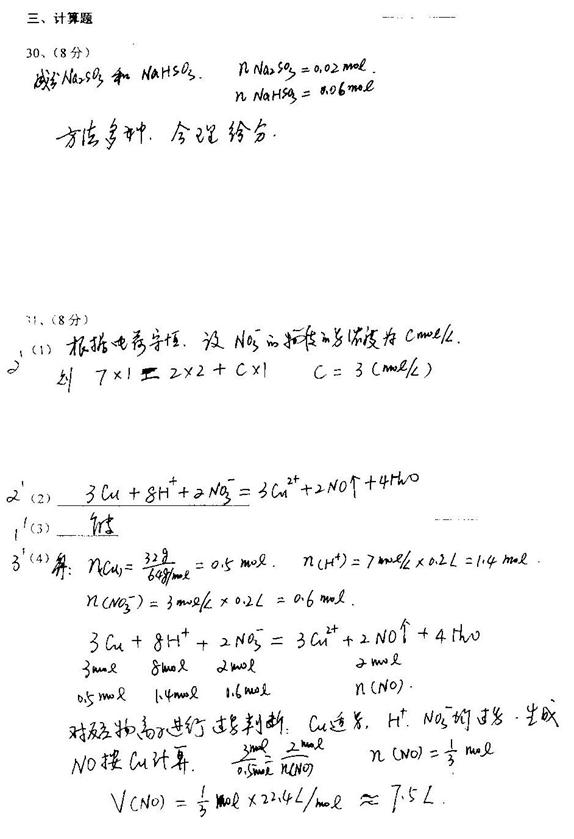 三、计算题
30、(8分)
成分Na₂SO₃ 和 NaHSO₃. n Na₂SO₃ = 0.02 mol.
n NaHSO₃ = 0.06 mol
方法多种. 合理给分.
31、(8分)
2' (1) 根据电荷守恒. 设 NO₃⁻ 的物质的量浓度为 C mol/L.
则 7×1 = 2×2 + C×1 C = 3 (mol/L)
2' (2) 3Cu + 8H⁺ + 2NO₃⁻ = 3Cu²⁺ + 2NO↑ + 4H₂O
1' (3)
3' (4) 解: n(Cu) = 32g/64g/mol = 0.5 mol. n(H⁺) = 7 mol/L × 0.2L = 1.4 mol.
n(NO₃⁻) = 3 mol/L × 0.2L = 0.6 mol.
3Cu + 8H⁺ + 2NO₃⁻ = 3Cu²⁺ + 2NO↑ + 4H₂O
3mol 8mol 2mol 2mol
0.5mol 1.4mol 0.6mol n(NO).
对反应物离子进行过量判断: Cu适量, H⁺. NO₃⁻均过量. 生成
NO按Cu计算. 3mol/0.5mol = 2mol/n(NO) n(NO) = 1/3 mol
V(NO) = 1/3 mol × 22.4L/mol ≈ 7.5L.